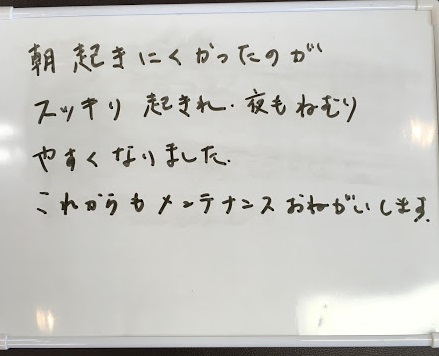 朝起きにくかったのが
スッキリ 起きれ.夜もねむり
やすくなりました.
これからもメンテナンスおねがいします.